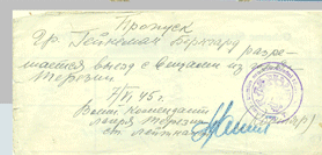 Пропуск
Гр. Гейнеман Бернгард разре-
шается выезд с вещами из
Терезин
7/VI 45 г.
Воен Комендант
лагеря Терезин
ст. лейтенант